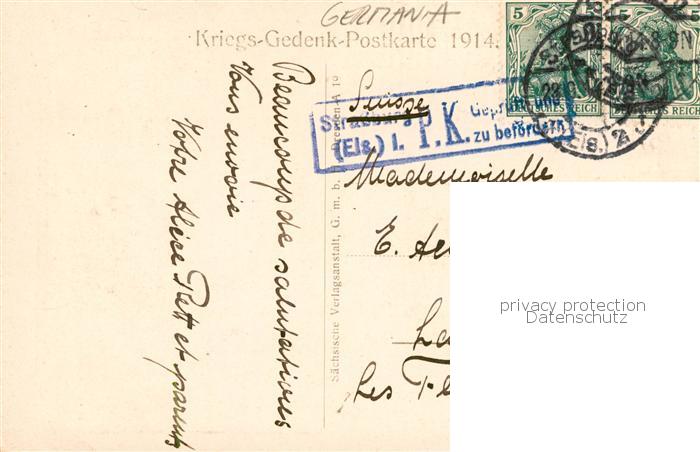 GERMANIA
Kriegs-Gedenk-Postkarte 1914.
5
5
DEUTSCHES REICH
DEUTSCHES REICH
Suisse
Strassburg
(Els.) 1. P.K. Geprüft und
zu befördern
Mademoiselle
E.
Les
Sächsische Verlagsanstalt, G. m. b. Dresden-A 19
Beaucoup de salutations
Vous envoie
Votre Alice et parents
privacy protection
Datenschutz